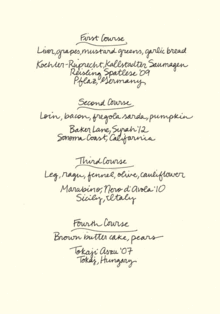 First Course
Liver, grapes, mustard greens, garlic bread
Koehler-Ruprecht, Kallstadter Saumagen
Riesling Spatlese 09
Pfalz, Germany
Second Course
Loin, bacon, fregola sarda, pumpkin
Baker Lane, Syrah '12
Sonoma Coast, California
Third Course
Leg, ragu, fennel, olive, cauliflower
Marabino, Nero d'Avola '10
Sicily, Italy
Fourth Course
Brown butter cake, pears
Tokaji Aszu '07
Tokaj, Hungary